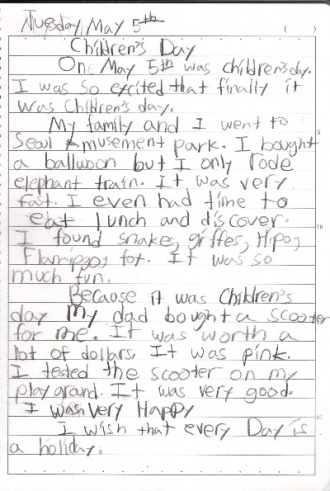 Tuesday, May 5th
( )
Children's Day
On May 5th was children's day.
I was so excited that finally it
was Children's day.
My family and I went to
Seoul Amusement park. I bought
a balluoon but I only rode
elephant train. It was very
fast. I even had time to
eat lunch and discover.
I found snakes, griffes, Hipo,
Flamigos, fox. It was so
much fun.
Because it was Children's
day My dad bought a scooter
for me. It was worth a
lot of dollars. It was pink.
I tested the scooter on my
playgrand. It was very good.
I was very Happy
I wish that every Day is
a holiday.